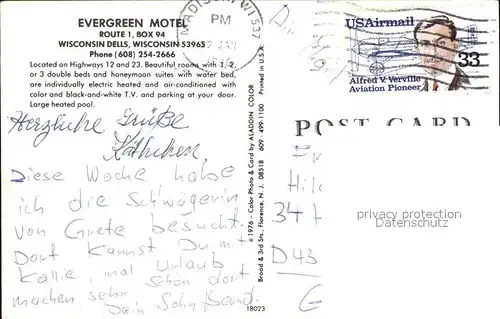 EVERGREEN MOTEL
ROUTE 1, BOX 94
WISCONSIN DELLS, WISCONSIN 53965
Phone (608) 254-2666
Located on Highways 12 and 23. Beautiful rooms with 1, 2,
or 3 double beds and honeymoon suites with water bed,
are individually electric heated and air-conditioned with
color and black-and-white T.V. and parking at your door.
Large heated pool.
Herzliche Grüße
Käthchen
Diese Woche habe
ich die Schwägerin
von Grete besucht.
Dort kannst Du mit
Kalle, mal Urlaub
machen, sehr schön dort
Dein Sohn Bernd.
18023
© 1976 - Color Photo & Card by ALADDIN COLOR
Broad & 3rd Sts., Florence, N. J. 08518 609-499-1100 Printed in U.S.A.
MADISON, WI 537
PM
USAirmail
33
Alfred V. Verville
Aviation Pioneer
POST CARD
34
D43
protected by copyright
Datenschutz